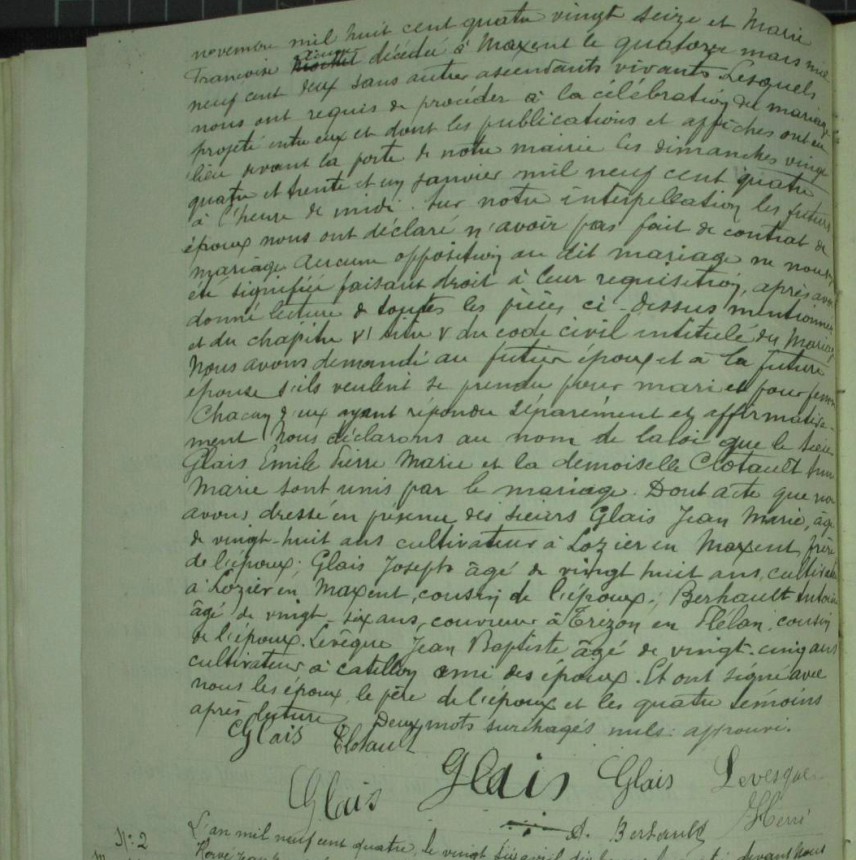 novembre mil huit cent quatre vingt seize et Marie
Francoise décédée à Maxent le quatorze mars mil
neuf cent deux sans autres ascendants vivants. Lesquels
nous ont requis de procéder à la célébration du mariage
projeté entre eux et dont les publications et affiches ont eu
lieu devant la porte de notre mairie les dimanches vingt
quatre et trente et un janvier mil neuf cent quatre
à l'heure de midi. Sur notre interpellation les futurs
époux nous ont déclaré n'avoir pas fait de contrat de
mariage. Aucune opposition au dit mariage ne nous
été signifiée faisant droit à leur requisition, après avoir
donné lecture de toutes les pièces ci-dessus mentionnées
et du chapitre VI titre V du code civil intitulé du Mariage
Nous avons demandé au futur époux et à la future
épouse s'ils veulent se prendre pour mari et pour femme
Chacun d'eux ayant répondu séparément et affirmative-
ment Nous déclarons au nom de la loi que le sieur
Glais Emile Pierre Marie et la demoiselle Clotault
Marie sont unis par le mariage. Dont acte que nous
avons dressé en présence des sieurs Glais Jean Marie, âgé
de vingt-huit ans cultivateur à Lozier en Maxent, frère
de l'époux; Glais Joseph âgé de vingt huit ans, cultivateur
à Lozier en Maxent, cousin de l'époux; Berhault Antoine
âgé de vingt six ans, couvreur à Trizon en Plélan, cousin
de l'époux. Levêque Jean Baptiste âgé de vingt-cinq ans
cultivateur à Catillon ami des époux. Et ont signé avec
nous les époux le père de l'époux et les quatre témoins
après lecture. Deux mots surchagés nuls: approuvé.
Glais Clotault
Glais Glais Glais Levesque
Berhault Herré
N: 2 L'an mil neuf cent quatre, le vingt